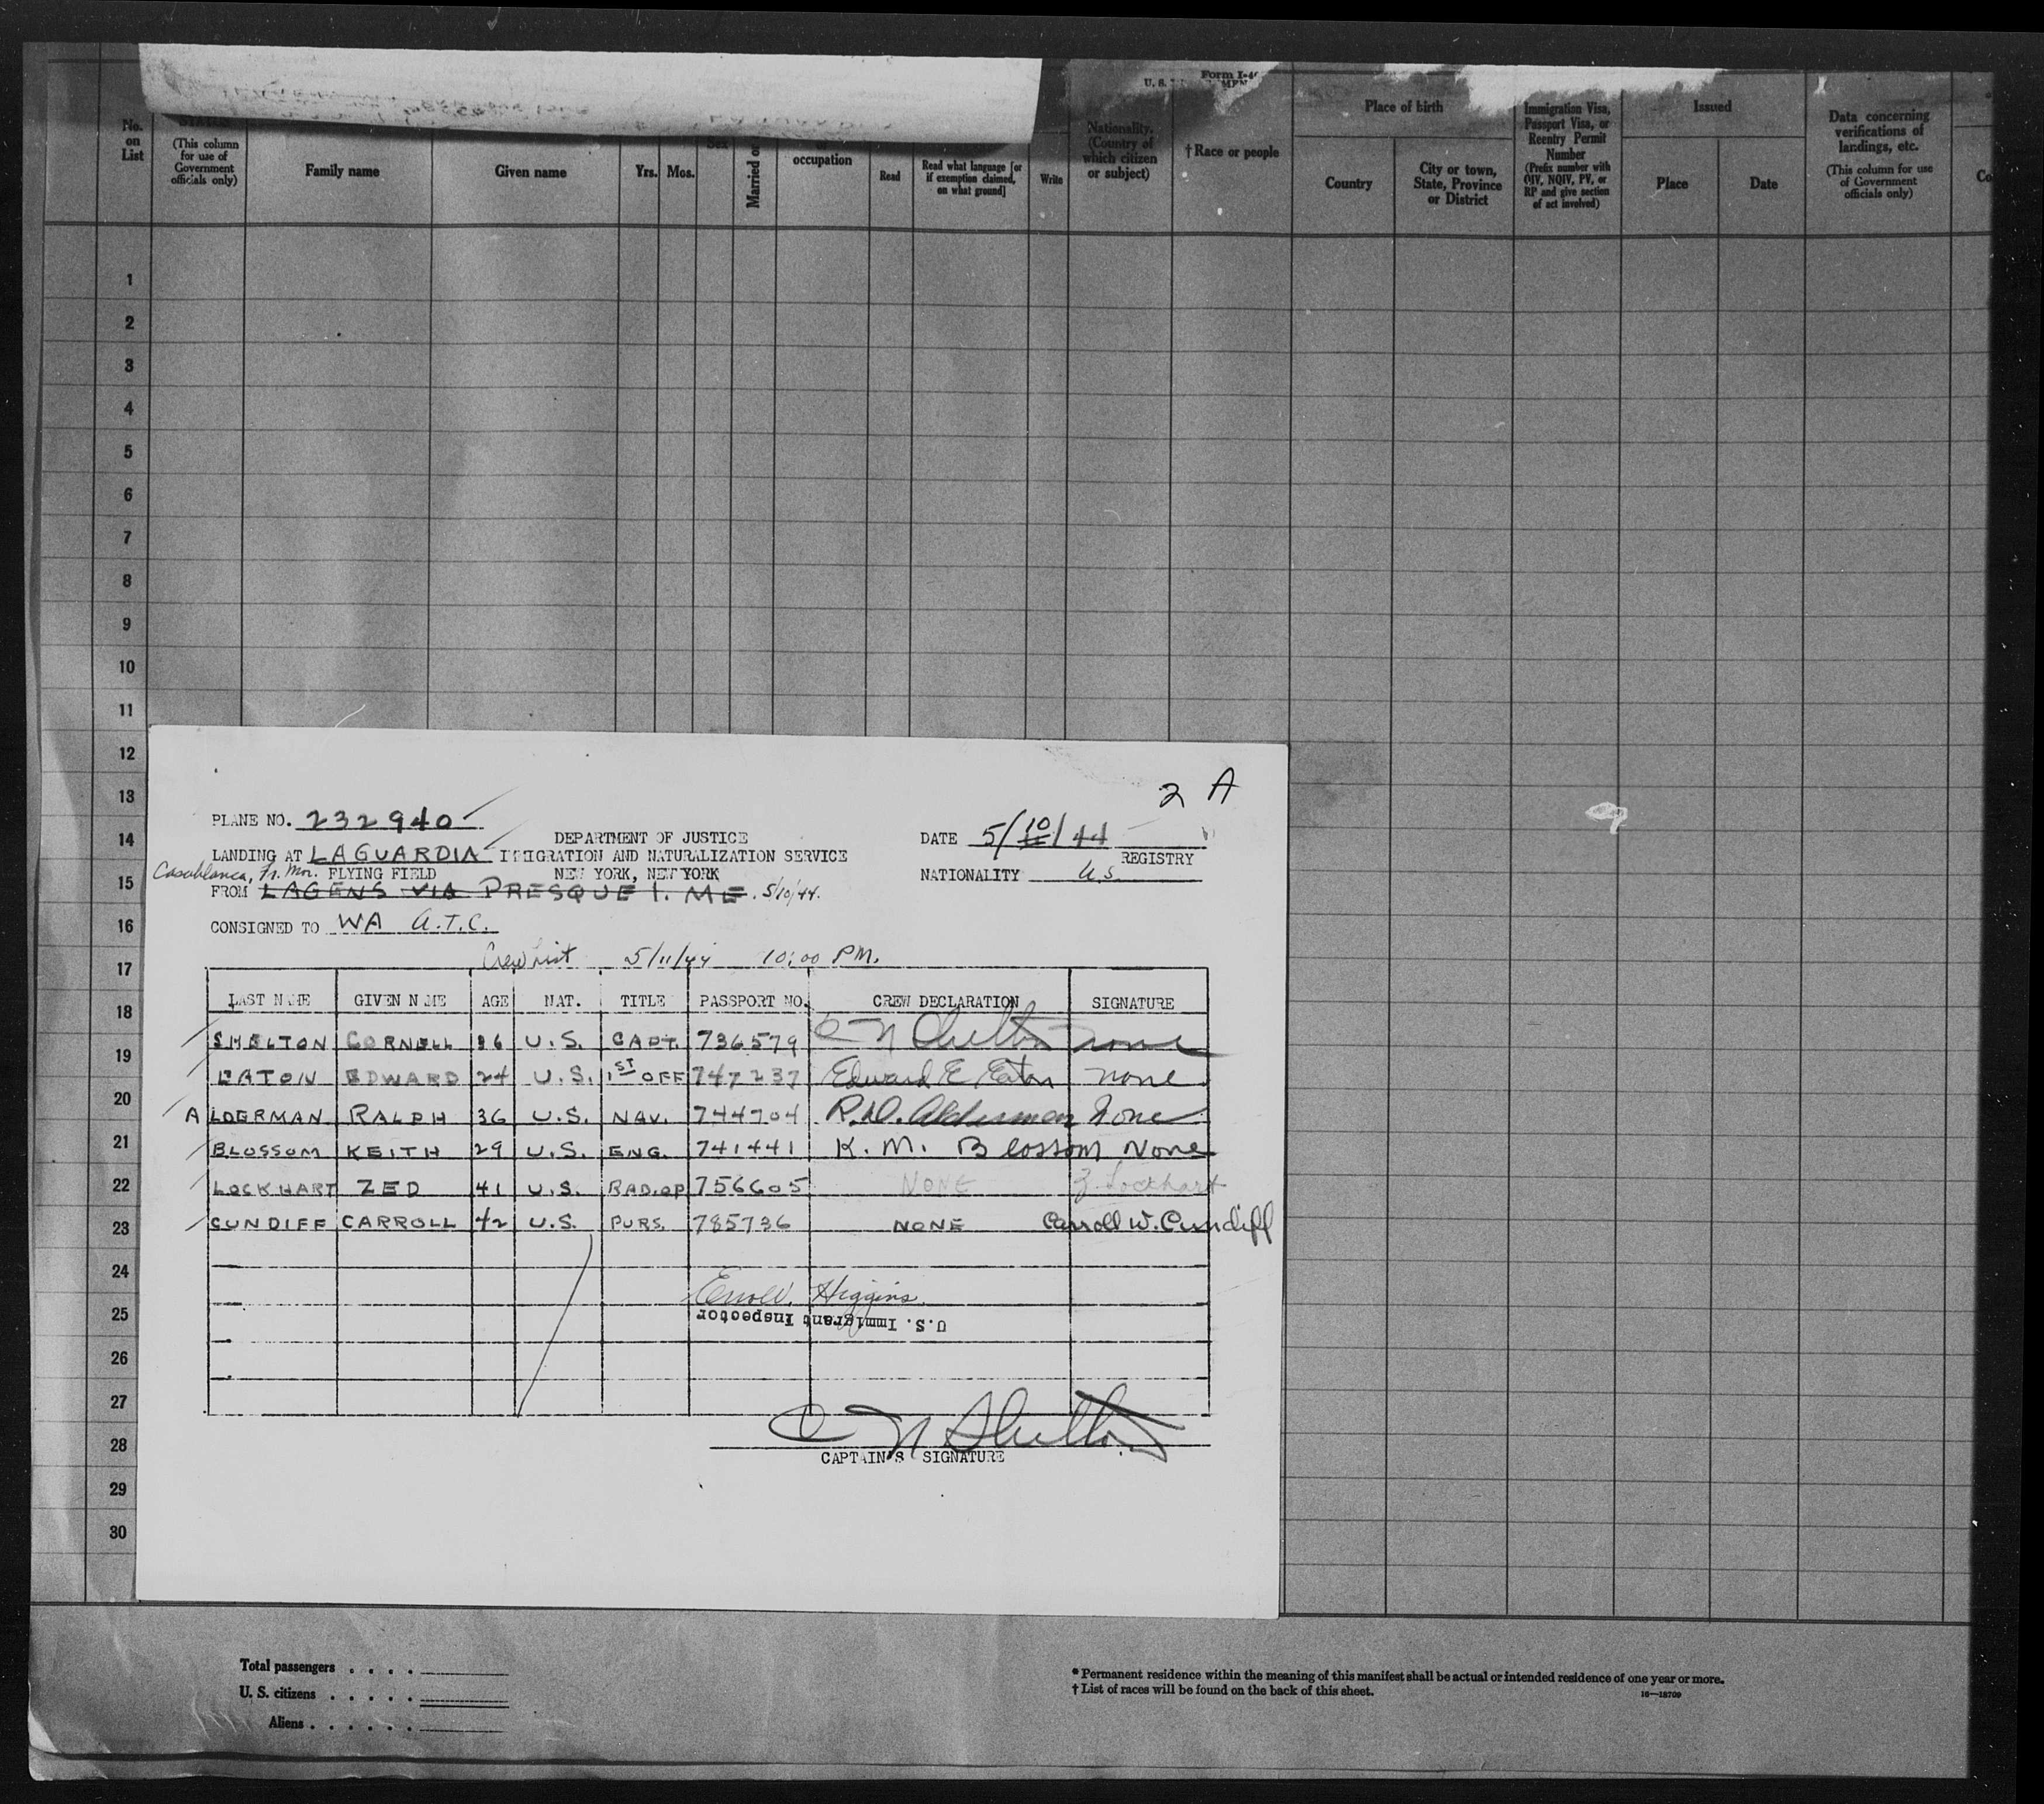 Form I-4
U. S.
No.
on
List
(This column
for use of
Government
officials only)
Family name
Given name
Yrs.
Mos.
Sex
Married or
occupation
Read
Read what language [or
if exemption claimed,
on what ground]
Write
Nationality.
(Country of
which citizen
or subject)
† Race or people
Place of birth
Country
City or town,
State, Province
or District
Immigration Visa,
Passport Visa, or
Reentry Permit
Number
(Prefix number with
QIV, NQIV, PV, or
RP and give section
of act involved)
Issued
Place
Date
Data concerning
verifications of
landings, etc.
(This column for use
of Government
officials only)
Co
1
2
3
4
5
6
7
8
9
10
11
12
13
14
15
16
17
18
19
20
21
22
23
24
25
26
27
28
29
30
2 A
PLANE NO. 232940
DEPARTMENT OF JUSTICE
DATE 5/10/44
LANDING AT LAGUARDIA IMMIGRATION AND NATURALIZATION SERVICE
REGISTRY
Casablanca, Fr. Mor. FLYING FIELD NEW YORK, NEW YORK
NATIONALITY U.S.
FROM LAGENS VIA PRESQUE I. ME. 5/10/44.
CONSIGNED TO WA A.T.C.
Crew List 5/11/44 10:00 PM.
LAST NAME GIVEN NAME AGE NAT. TITLE PASSPORT NO. CREW DECLARATION SIGNATURE
SHELTON CORNELL 36 U.S. CAPT. 736579 C N Shelton none
EATON EDWARD 24 U.S. 1ST OFF 747237 Edward E Eaton none
ALDERMAN RALPH 36 U.S. NAV. 744704 R.D. Alderman None
BLOSSOM KEITH 29 U.S. ENG. 741441 K. M. Blossom None
LOCKHART ZED 41 U.S. RAD.OP 756605 NONE Z Lockhart
CUNDIFF CARROLL 42 U.S. PURS. 785736 NONE Carroll W. Cundiff
Higgins
U.S. Immigrant Inspector
C N Shelton
CAPTAIN'S SIGNATURE
Total passengers . . . .
U. S. citizens . . . . .
Aliens . . . . . .
* Permanent residence within the meaning of this manifest shall be actual or intended residence of one year or more.
† List of races will be found on the back of this sheet.
16—18709